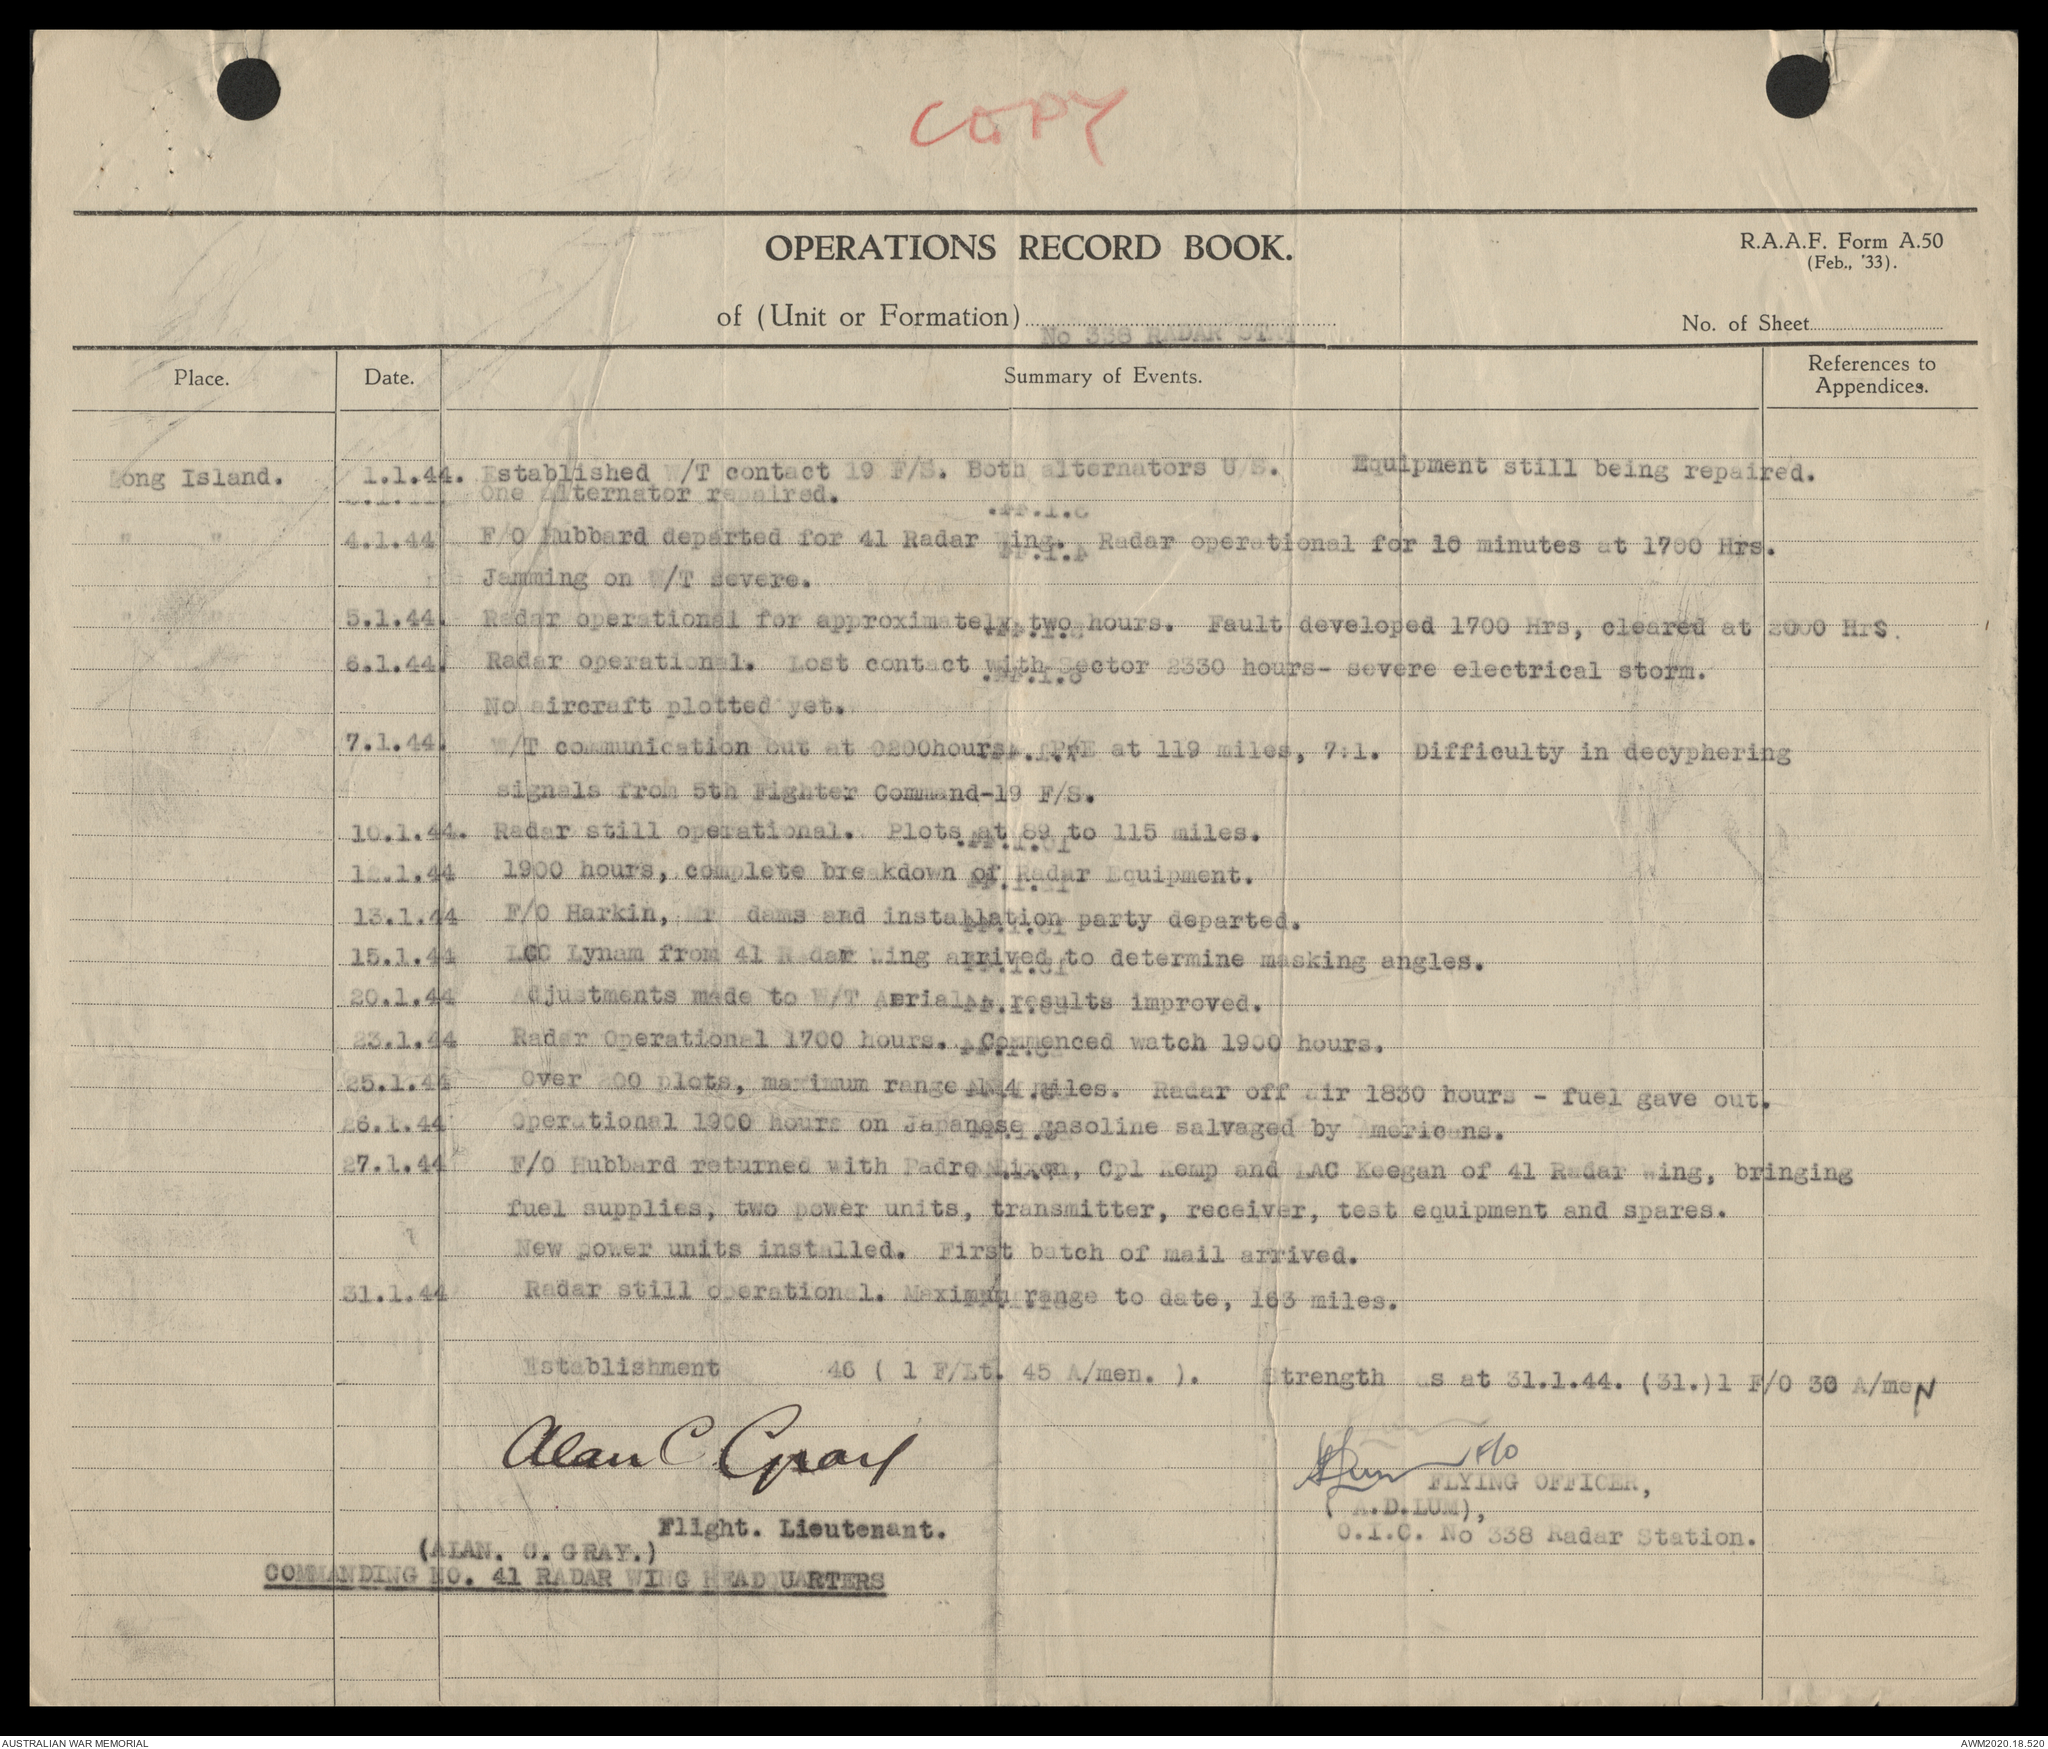 COPY
OPERATIONS RECORD BOOK.
R.A.A.F. Form A.50
(Feb., '33).
of (Unit or Formation) No 338 RADAR
No. of Sheet
Place. Date. Summary of Events. References to Appendices.
Long Island. 1.1.44. Established W/T contact 19 F/S. Both alternators U/S. Equipment still being repaired.
One alternator repaired.
" " 4.1.44 F/O Hubbard departed for 41 Radar Wing. Radar operational for 10 minutes at 1700 Hrs.
Jamming on W/T severe.
" " 5.1.44. Radar operational for approximately two hours. Fault developed 1700 Hrs, cleared at 2000 Hrs.
6.1.44. Radar operational. Lost contact with Sector 2330 hours- severe electrical storm.
No aircraft plotted yet.
7.1.44. W/T communication but at 0200hours. at 119 miles, 7:1. Difficulty in decyphering
signals from 5th Fighter Command-19 F/S.
10.1.44. Radar still operational. Plots at 89 to 115 miles.
12.1.44 1900 hours, complete breakdown of Radar Equipment.
13.1.44 F/O Harkin, Mr dams and installation party departed.
15.1.44 Lynam from 41 Radar Wing arrived to determine masking angles.
20.1.44 Adjustments made to W/T Aerial results improved.
23.1.44 Radar Operational 1700 hours. Commenced watch 1900 hours.
25.1.44 Over 200 plots, maximum range miles. Radar off air 1830 hours - fuel gave out.
26.1.44 Operational 1900 hours on Japanese gasoline salvaged by Americans.
27.1.44 F/O Hubbard returned with Padre Nixon, Cpl Kemp and LAC Keegan of 41 Radar Wing, bringing
fuel supplies, two power units, transmitter, receiver, test equipment and spares.
New power units installed. First batch of mail arrived.
31.1.44 Radar still operational. Maximum range to date, 163 miles.
Establishment 46 ( 1 F/Lt. 45 A/men. ). Strength as at 31.1.44. (31.)1 F/O 30 A/meN
Alan C Gray
F/O
FLYING OFFICER,
( A.D.LUM),
O.I.C. No 338 Radar Station.
Flight. Lieutenant.
(ALAN. C. GRAY.)
COMMANDING NO. 41 RADAR WING HEADQUARTERS
AUSTRALIAN WAR MEMORIAL
AWM2020.18.520